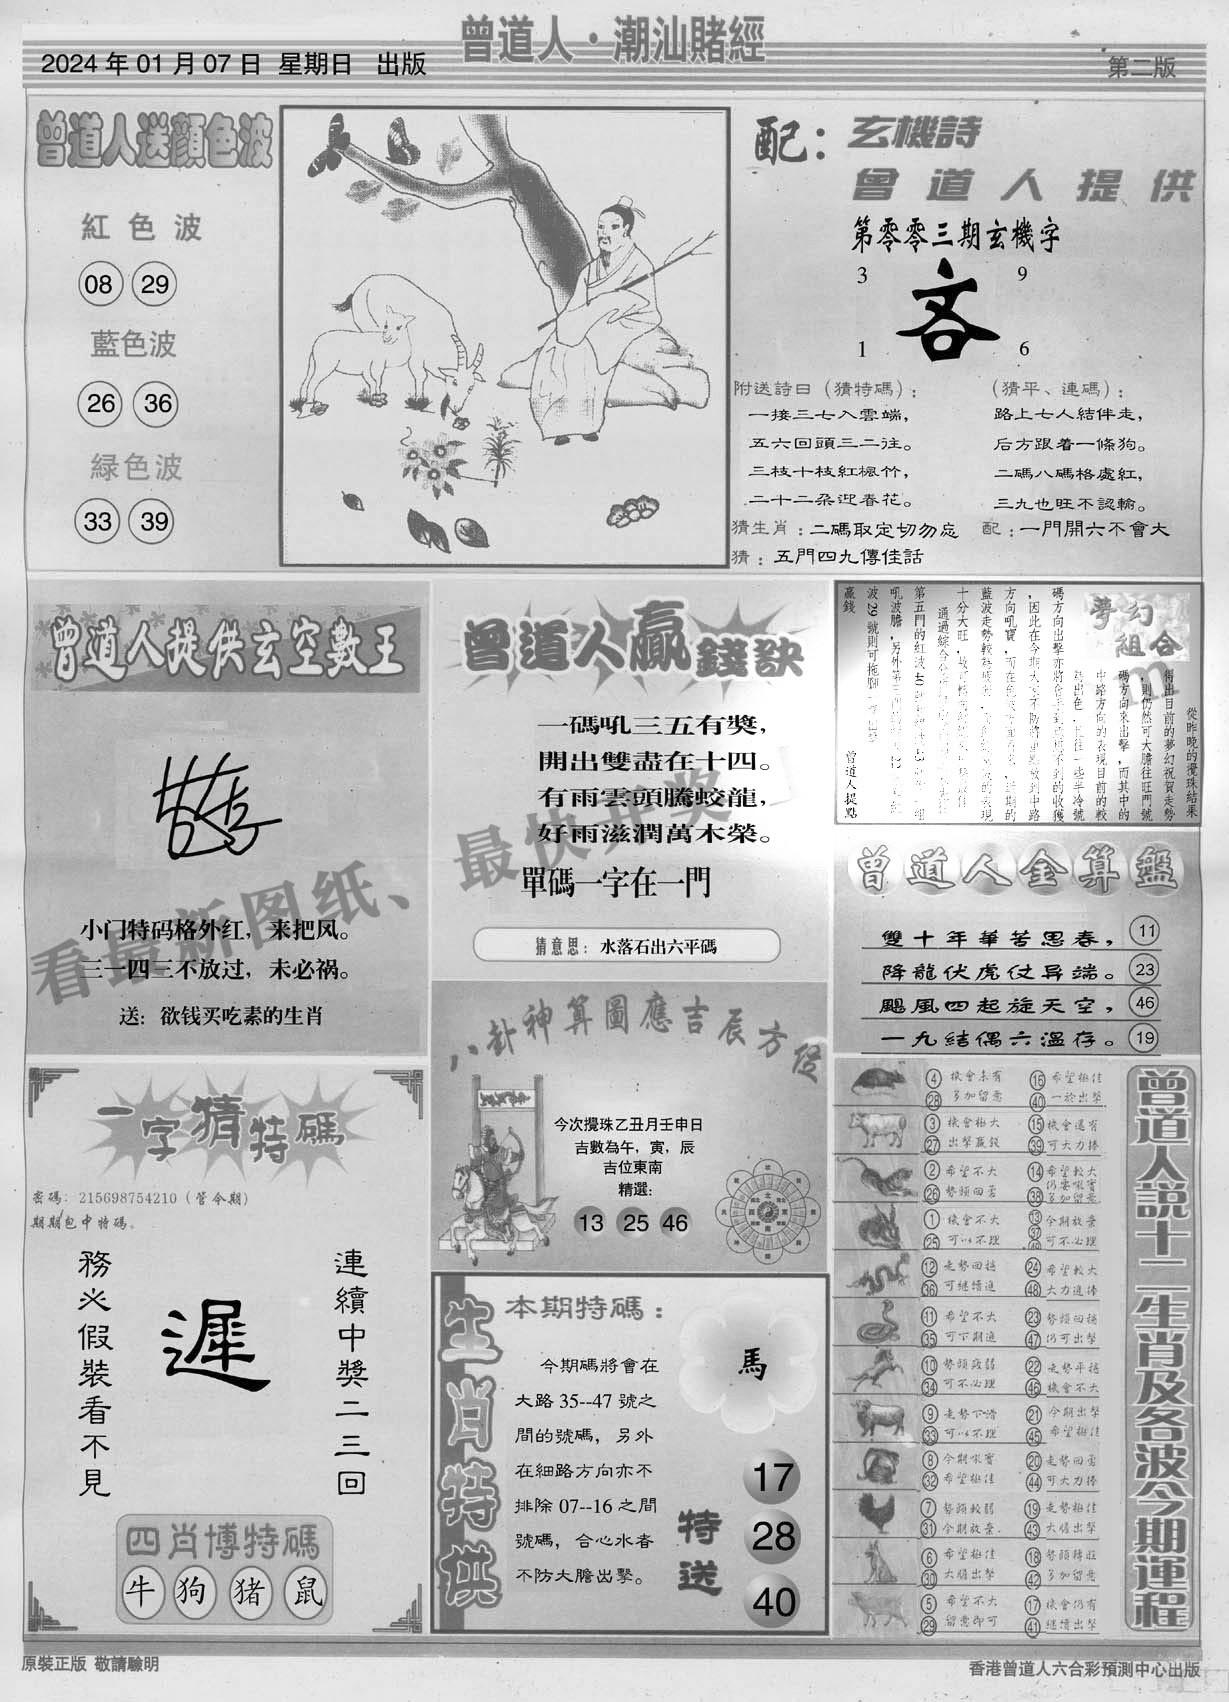 曾道人·潮汕賭經
2024 年 01 月 07 日 星期日 出版
第二版
曾道人送顏色波
紅色波
08 29
藍色波
26 36
緑色波
33 39
配：玄機詩
曾道人提供
第零零三期玄機字
3 9
吝
1 6
附送詩曰（猜特碼）：
一接三七入雲端，
五六回頭三二往。
三枝十枝紅楓竹，
二十二朵迎春花。
（猜平、連碼）：
路上七人結伴走，
后方跟着一條狗。
二碼八碼格處紅，
三九也旺不認輸。
猜生肖：二碼取定切勿忘
配：一門開六不會大
猜：五門四九傳佳話
曾道人提供玄空數王
小门特码格外红，来把凤。
三一四三不放过，未必祸。
送：欲钱买吃素的生肖
曾道人贏錢訣
一碼吼三五有獎，
開出雙盡在十四。
有雨雲頭騰蛟龍，
好雨滋潤萬木榮。
單碼一字在一門
猜意思：水落石出六平碼
夢幻組合
從昨晚的攪珠結果
得出目前的夢幻祝賀走勢
，則仍然可大膽往旺門號
碼方向來出擊，而其中的
中路方向的表現目前的較
碼方向出擊亦將
十分大旺，
贏錢
曾道人提點
看最新图纸、最快开奖
曾道人金算盤
雙十年華苦思春， 11
降龍伏虎仗异端。 23
颶風四起旋天空， 46
一九結偶六溫存。 19
八卦神算圖應吉辰方位
今次攪珠乙丑月壬申日
吉數為午，寅，辰
吉位東南
精選：
13 25 46
一字猜特碼
密碼：215698754210（管令期）
期期包中特碼。
連續中獎二三回
遲
務必假裝看不見
四肖博特碼
牛 狗 猪 鼠
生肖特供
本期特碼：
馬
今期碼將會在
大路 35--47 號之
間的號碼，另外
在細路方向亦不
排除 07--16 之間
號碼，合心水者
不防大膽出擊。
特送
17
28
40
曾道人説十二生肖及各波今期運程
4 機會未有 16 希望極佳
28 多加留意 40 一於出擊
3 機會極大 15 機會還有
27 出擊贏錢 39 可大力捧
2 希望不大 14 希望較大
26 勢頭回勇 38 多加留意
1 機會不大 13 今期放棄
25 可以不理 37 49 可不必理
12 走勢回揚 24 希望較大
36 可繼續追 48 大力追捧
11 希望不大 23 勢頭回揚
35 可下期追 47 仍可出擊
10 勢頭疲弱 22 走勢平穩
34 可不必理 46 機會不大
9 走勢下滑 21 今期出擊
33 可以不理 45 希望極佳
8 今期吼實 20 走勢回勇
32 希望極佳 44 可大力捧
7 勢頭較弱 19 走勢極佳
31 今期放棄 43 大膽出擊
6 希望極佳 18 勢頭轉旺
30 大膽出擊 42 多加留意
5 希望不大 17 機會仍有
29 留意即可 41 繼續出擊
原裝正版 敬請驗明
香港曾道人六合彩預測中心出版